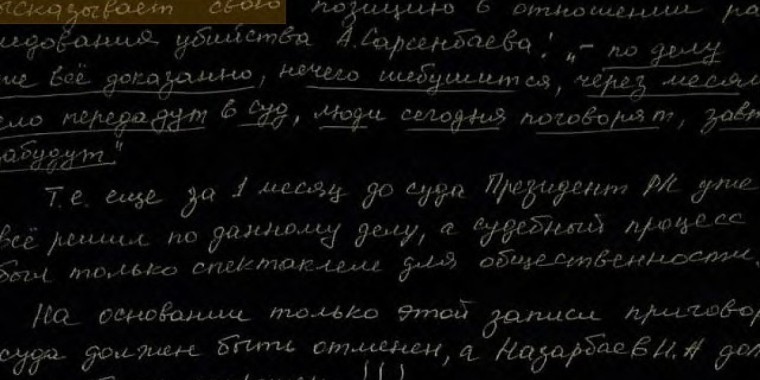 ысказывает свою позицию в отношении ра
ледования убийства А.Сарсенбаева: „– по делу
же всё доказанно, нечего шебушится, через месяц
ело передадут в суд, люди сегодня поговорят, завт
абудут"
Т.е. еще за 1 месяц до суда Президент РК уже
всё решил по данному делу, а судебный процесс
был только спектаклем для общественности.
На основании только этой записи приговор
суда должен быть отменен, а Назарбаев Н.А дол